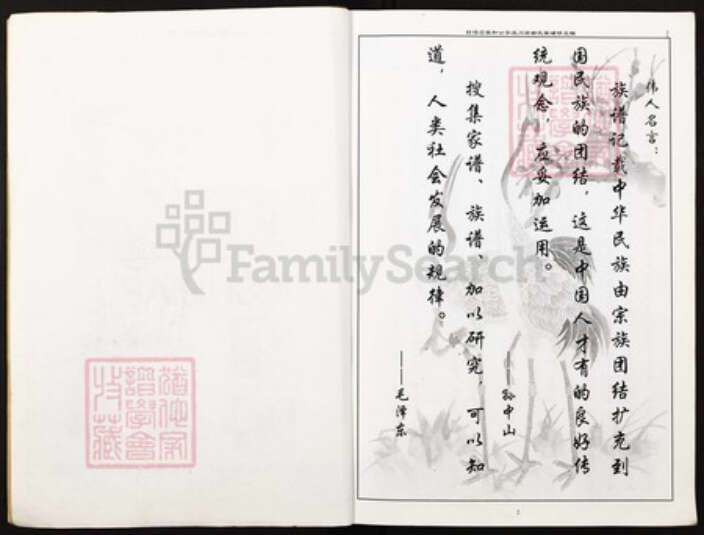 伟人名言：
族谱记载中华民族由宗族团结扩充到
国民族的团结，这是中国人才有的良好传
统观念，应妥加运用。
——孙中山
搜集家谱、族谱、加以研究，可以知
道，人类社会发展的规律。
——毛泽东
FamilySearch